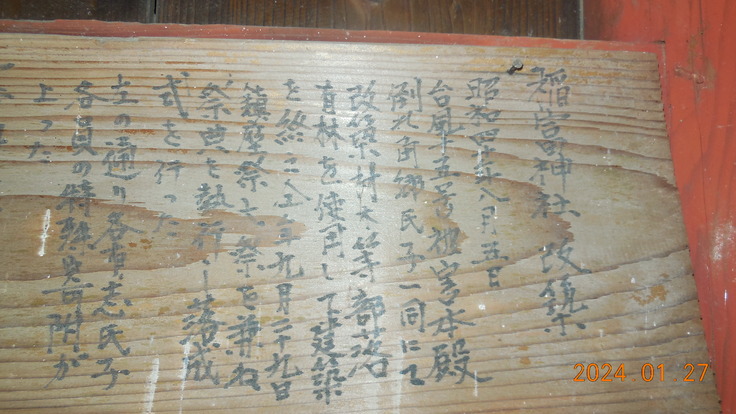 稲富神社 改築
昭和四十六年八月五日
台風十五号被害本殿
倒れ角郷氏子一同にて
改築材木等部落
有林を使用して建築
を終え全年九月二十九日
鎮座祭大祭を兼ね
祭典を執行し落成
式を行った
左の通り各有志氏子
各員の特殊寄附が
上った
2024.01.27